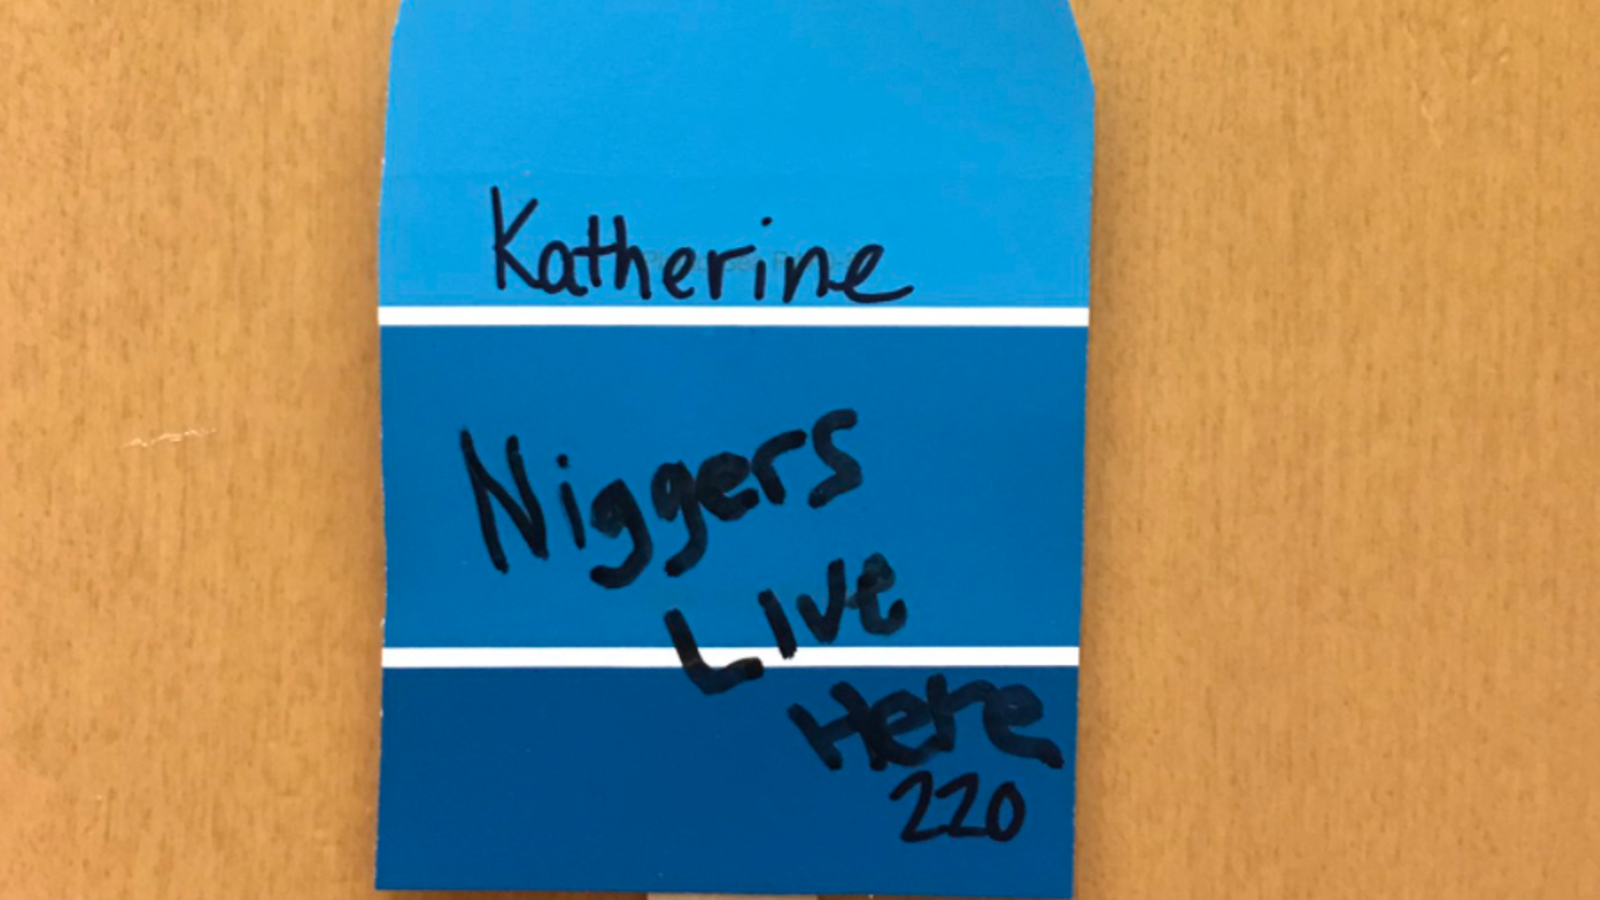 Katherine
Niggers
Live
Here
220